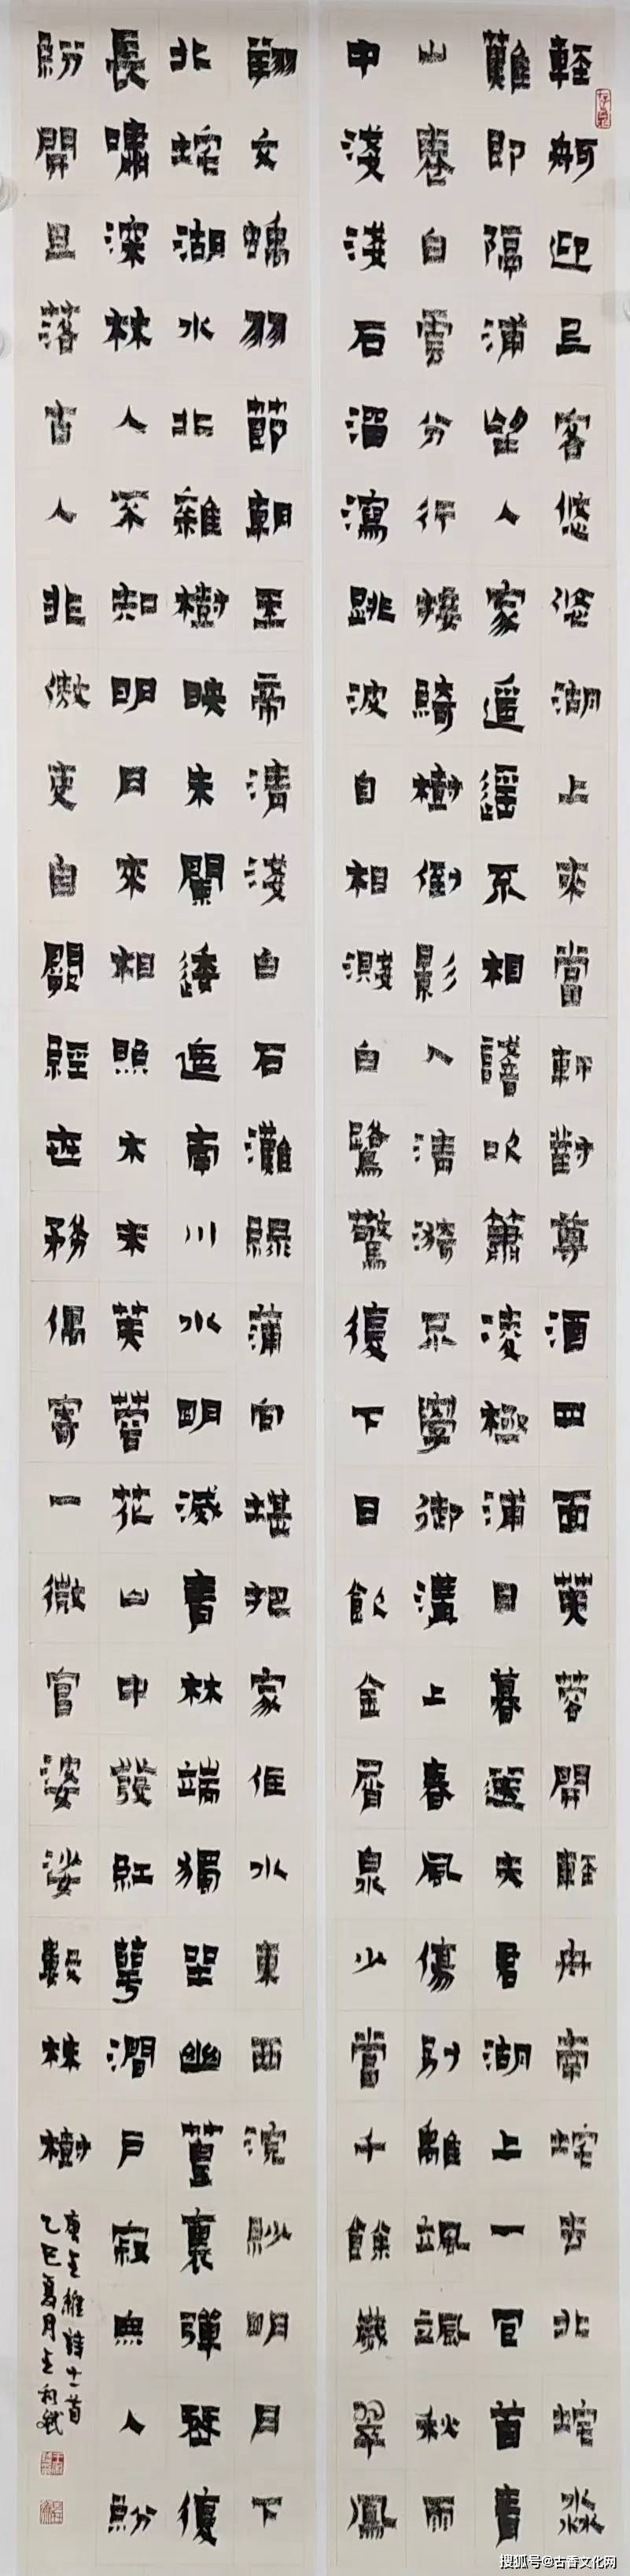 輕舸迎上客悠悠湖上來當軒對尊酒四面芙蓉開輕舟南垞去北垞淼
難即隔浦望人家遙遙不相識吹簫凌極浦日暮送夫君湖上一回首青
山卷白雲分行接綺樹倒影入清漪不學御溝上春風傷別離颯颯秋雨
中淺淺石溜瀉跳波自相濺白鷺驚復下日飲金屑泉少當千餘歲翠鳳
翊文螭羽節朝玉帝清淺白石灘綠蒲向堪把家住水東西浣紗明月下
北垞湖水北雜樹映朱闌逶迤南川水明滅青林端獨坐幽篁裏彈琴復
長嘯深林人不知明月來相照木末芙蓉花山中發紅萼澗戶寂無人紛
紛開且落古人非傲吏自闕經世務偶寄一微官婆娑數株樹
唐王維詩十一首
乙巳夏月王
搜狐号@古香文化网